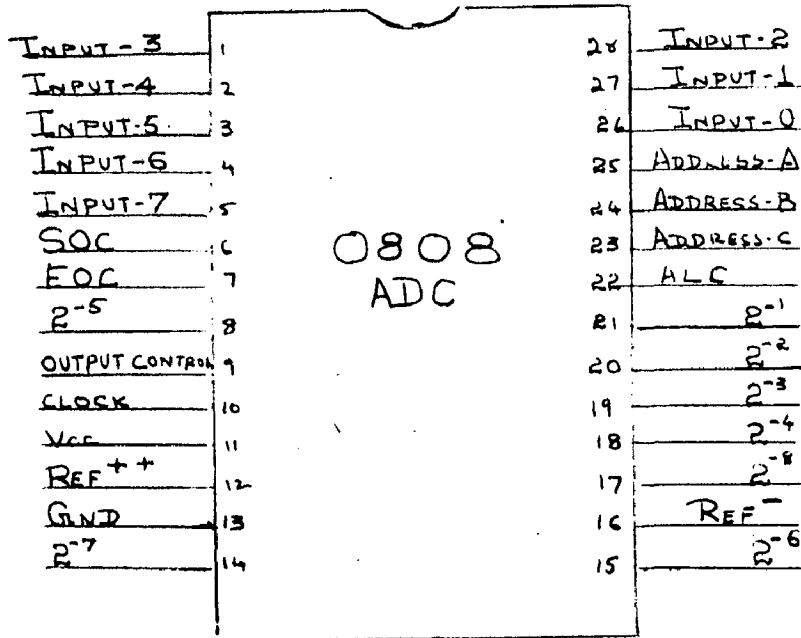 INPUT-3 1
INPUT-4 2
INPUT-5 3
INPUT-6 4
INPUT-7 5
SOC 6
EOC 7
2^-5 8
OUTPUT CONTROL 9
CLOCK 10
Vcc 11
REF++ 12
GND 13
2^-7 14
0808
ADC
28 INPUT-2
27 INPUT-1
26 INPUT-0
25 ADDRESS-A
24 ADDRESS-B
23 ADDRESS-C
22
21 2^-1
20 2^-2
19 2^-3
18 2^-4
17 2^-8
16 REF-
15 2^-6